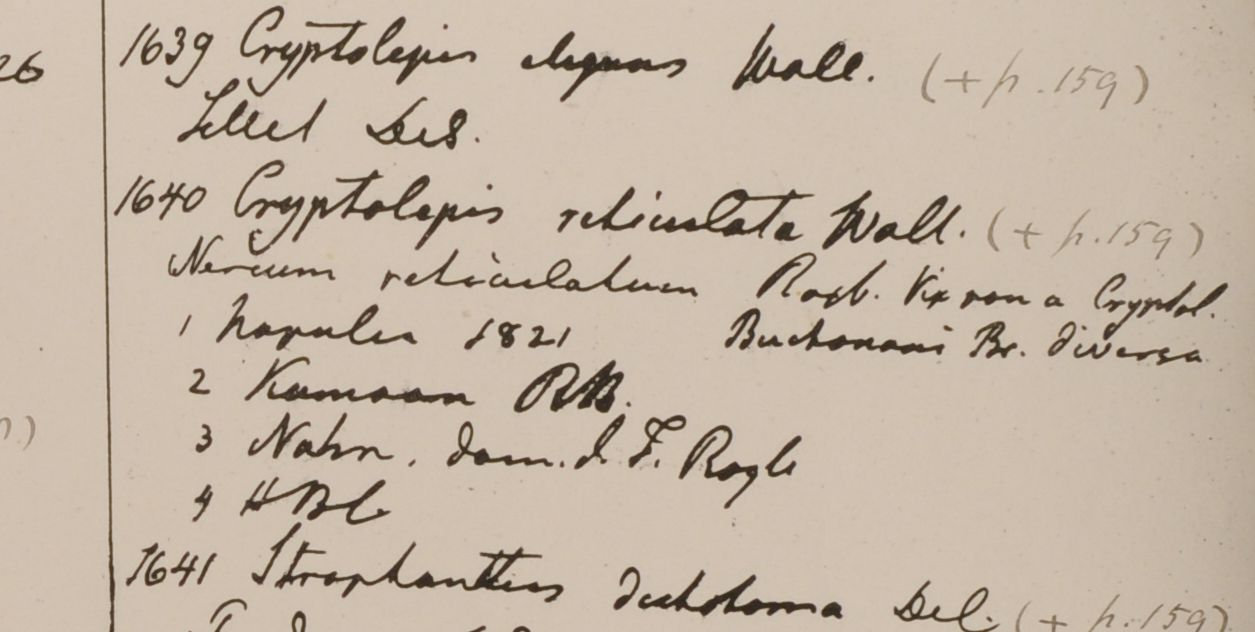 26
1639 Cryptolepis elegans Wall. (+ p. 159)
Sillet DeS.
1640 Cryptolepis reticulata Wall. (+ p. 159)
Nerium reticulatum Roxb. Vix non a Cryptol.
1 Napalia 1821 Buchanani Br. diversa
2 Kamaon RB.
3 Nahn. dom. J. F. Royle
4 HBC
1641 Strophanthus dichotoma Del. (+ p. 159)